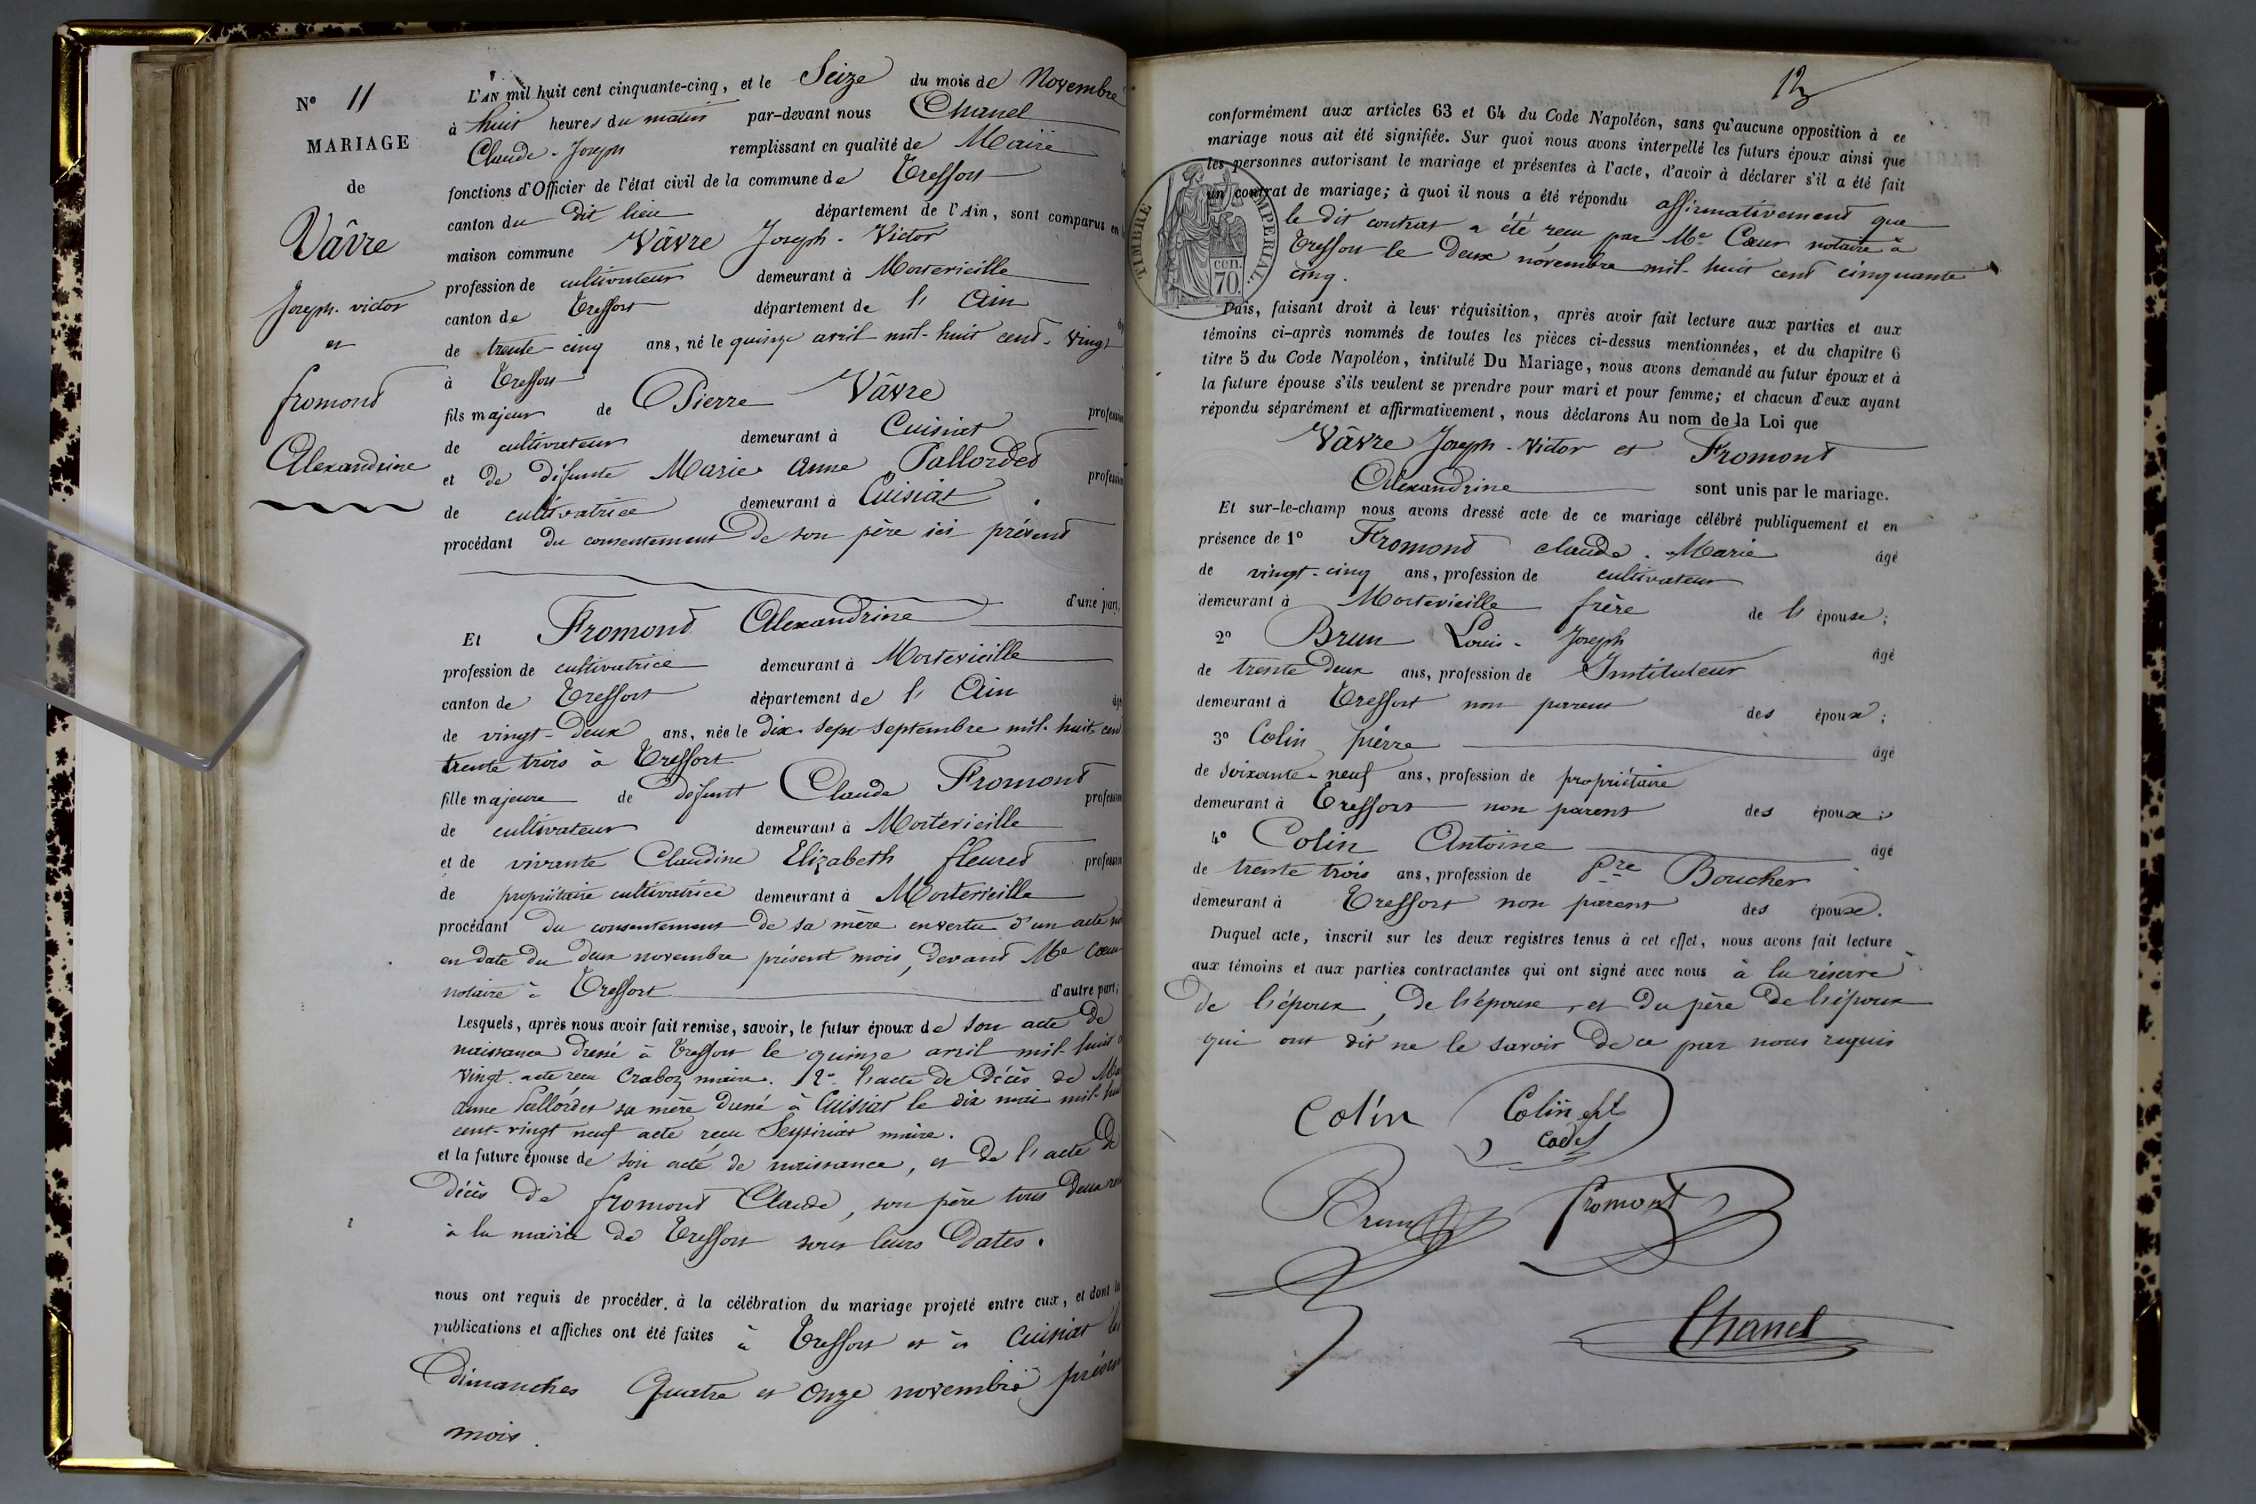 N° 11
MARIAGE
de
Vâvre
Joseph. victor
et
fromond
Alexandrine
L'AN mil huit cent cinquante-cinq, et le Seize du mois de Novembre
à huit heures du matin par-devant nous Chanel
Claude-Joseph remplissant en qualité de Maire
fonctions d'Officier de l'état civil de la commune de Treffort
canton du dit lieu département de l'Ain, sont comparus en
maison commune Vâvre Joseph-Victor
profession de cultivateur demeurant à Mortevieille
canton de Treffort département de l'Ain
de trente-cinq ans, né le quinze avril mil-huit cent-vingt
à Treffort
fils majeur de Pierre Vâvre profession
de cultivateur demeurant à Cuisiat
et de défunte Marie Anne Pallordet profession
de cultivatrice demeurant à Cuisiat
procédant du consentement de son père ici présent
d'une part,
Et Fromond Alexandrine
profession de cultivatrice demeurant à Mortevieille
canton de Treffort département de l'Ain
de vingt-deux ans, née le dix-sept septembre mil-huit-cent
trente trois à Treffort
fille majeure de défunt Claude Fromond profession
de cultivateur demeurant à Mortevieille
et de vivante Claudine Elizabeth fleuret profession
de propriétaire cultivatrice demeurant à Mortevieille
procédant du consentement de sa mère en vertu d'un acte
en date du deux novembre présent mois, devant Me Cœur
notaire à Treffort d'autre part;
Lesquels, après nous avoir fait remise, savoir, le futur époux de son acte de
naissance dressé à Treffort le quinze avril mil-huit
vingt. acte reçu Craboz maire. 2° l'acte de décès de
anne Pallordet sa mère dressé à Cuisiat le dix mai mil-
cent-vingt neuf acte reçu maire.
et la future épouse de son acte de naissance, et de l'acte de
décès de fromond Claude, son père tous deux
à la mairie de Treffort sous leurs dates.
nous ont requis de procéder à la célébration du mariage projeté entre eux, et dont les
publications et affiches ont été faites à Treffort et à Cuisiat les
dimanches Quatre et Onze novembre présent
mois.
12
conformément aux articles 63 et 64 du Code Napoléon, sans qu'aucune opposition à ce
mariage nous ait été signifiée. Sur quoi nous avons interpellé les futurs époux ainsi que
les personnes autorisant le mariage et présentes à l'acte, d'avoir à déclarer s'il a été fait
un contrat de mariage; à quoi il nous a été répondu affirmativement que
le dit contrat a été reçu par Me Cœur notaire à
Treffort le deux novembre mil-huit cent cinquante
cinq.
TIMBRE IMPERIAL.
cen.
70.
Puis, faisant droit à leur réquisition, après avoir fait lecture aux parties et aux
témoins ci-après nommés de toutes les pièces ci-dessus mentionnées, et du chapitre 6
titre 5 du Code Napoléon, intitulé Du Mariage, nous avons demandé au futur époux et à
la future épouse s'ils veulent se prendre pour mari et pour femme; et chacun d'eux ayant
répondu séparément et affirmativement, nous déclarons Au nom de la Loi que
Vâvre Joseph-Victor et Fromont
Alexandrine sont unis par le mariage.
Et sur-le-champ nous avons dressé acte de ce mariage célébré publiquement et en
présence de 1° Fromond claude-Marie âgé
de vingt-cinq ans, profession de cultivateur
demeurant à Mortevieille frère de l'épouse;
2° Brun Louis-Joseph âgé
de trente deux ans, profession de Instituteur
demeurant à Treffort non parent des époux;
3° Colin pierre âgé
de soixante-neuf ans, profession de propriétaire
demeurant à Treffort non parent des époux;
4° Colin Antoine âgé
de trente trois ans, profession de pre Boucher
demeurant à Treffort non parent des époux.
Duquel acte, inscrit sur les deux registres tenus à cet effet, nous avons fait lecture
aux témoins et aux parties contractantes qui ont signé avec nous à la réserve
de l'époux, de l'épouse, et du père de l'époux
qui ont dit ne le savoir de ce par nous requis
Colin Colin
cadet
Brun fromont
Chanel